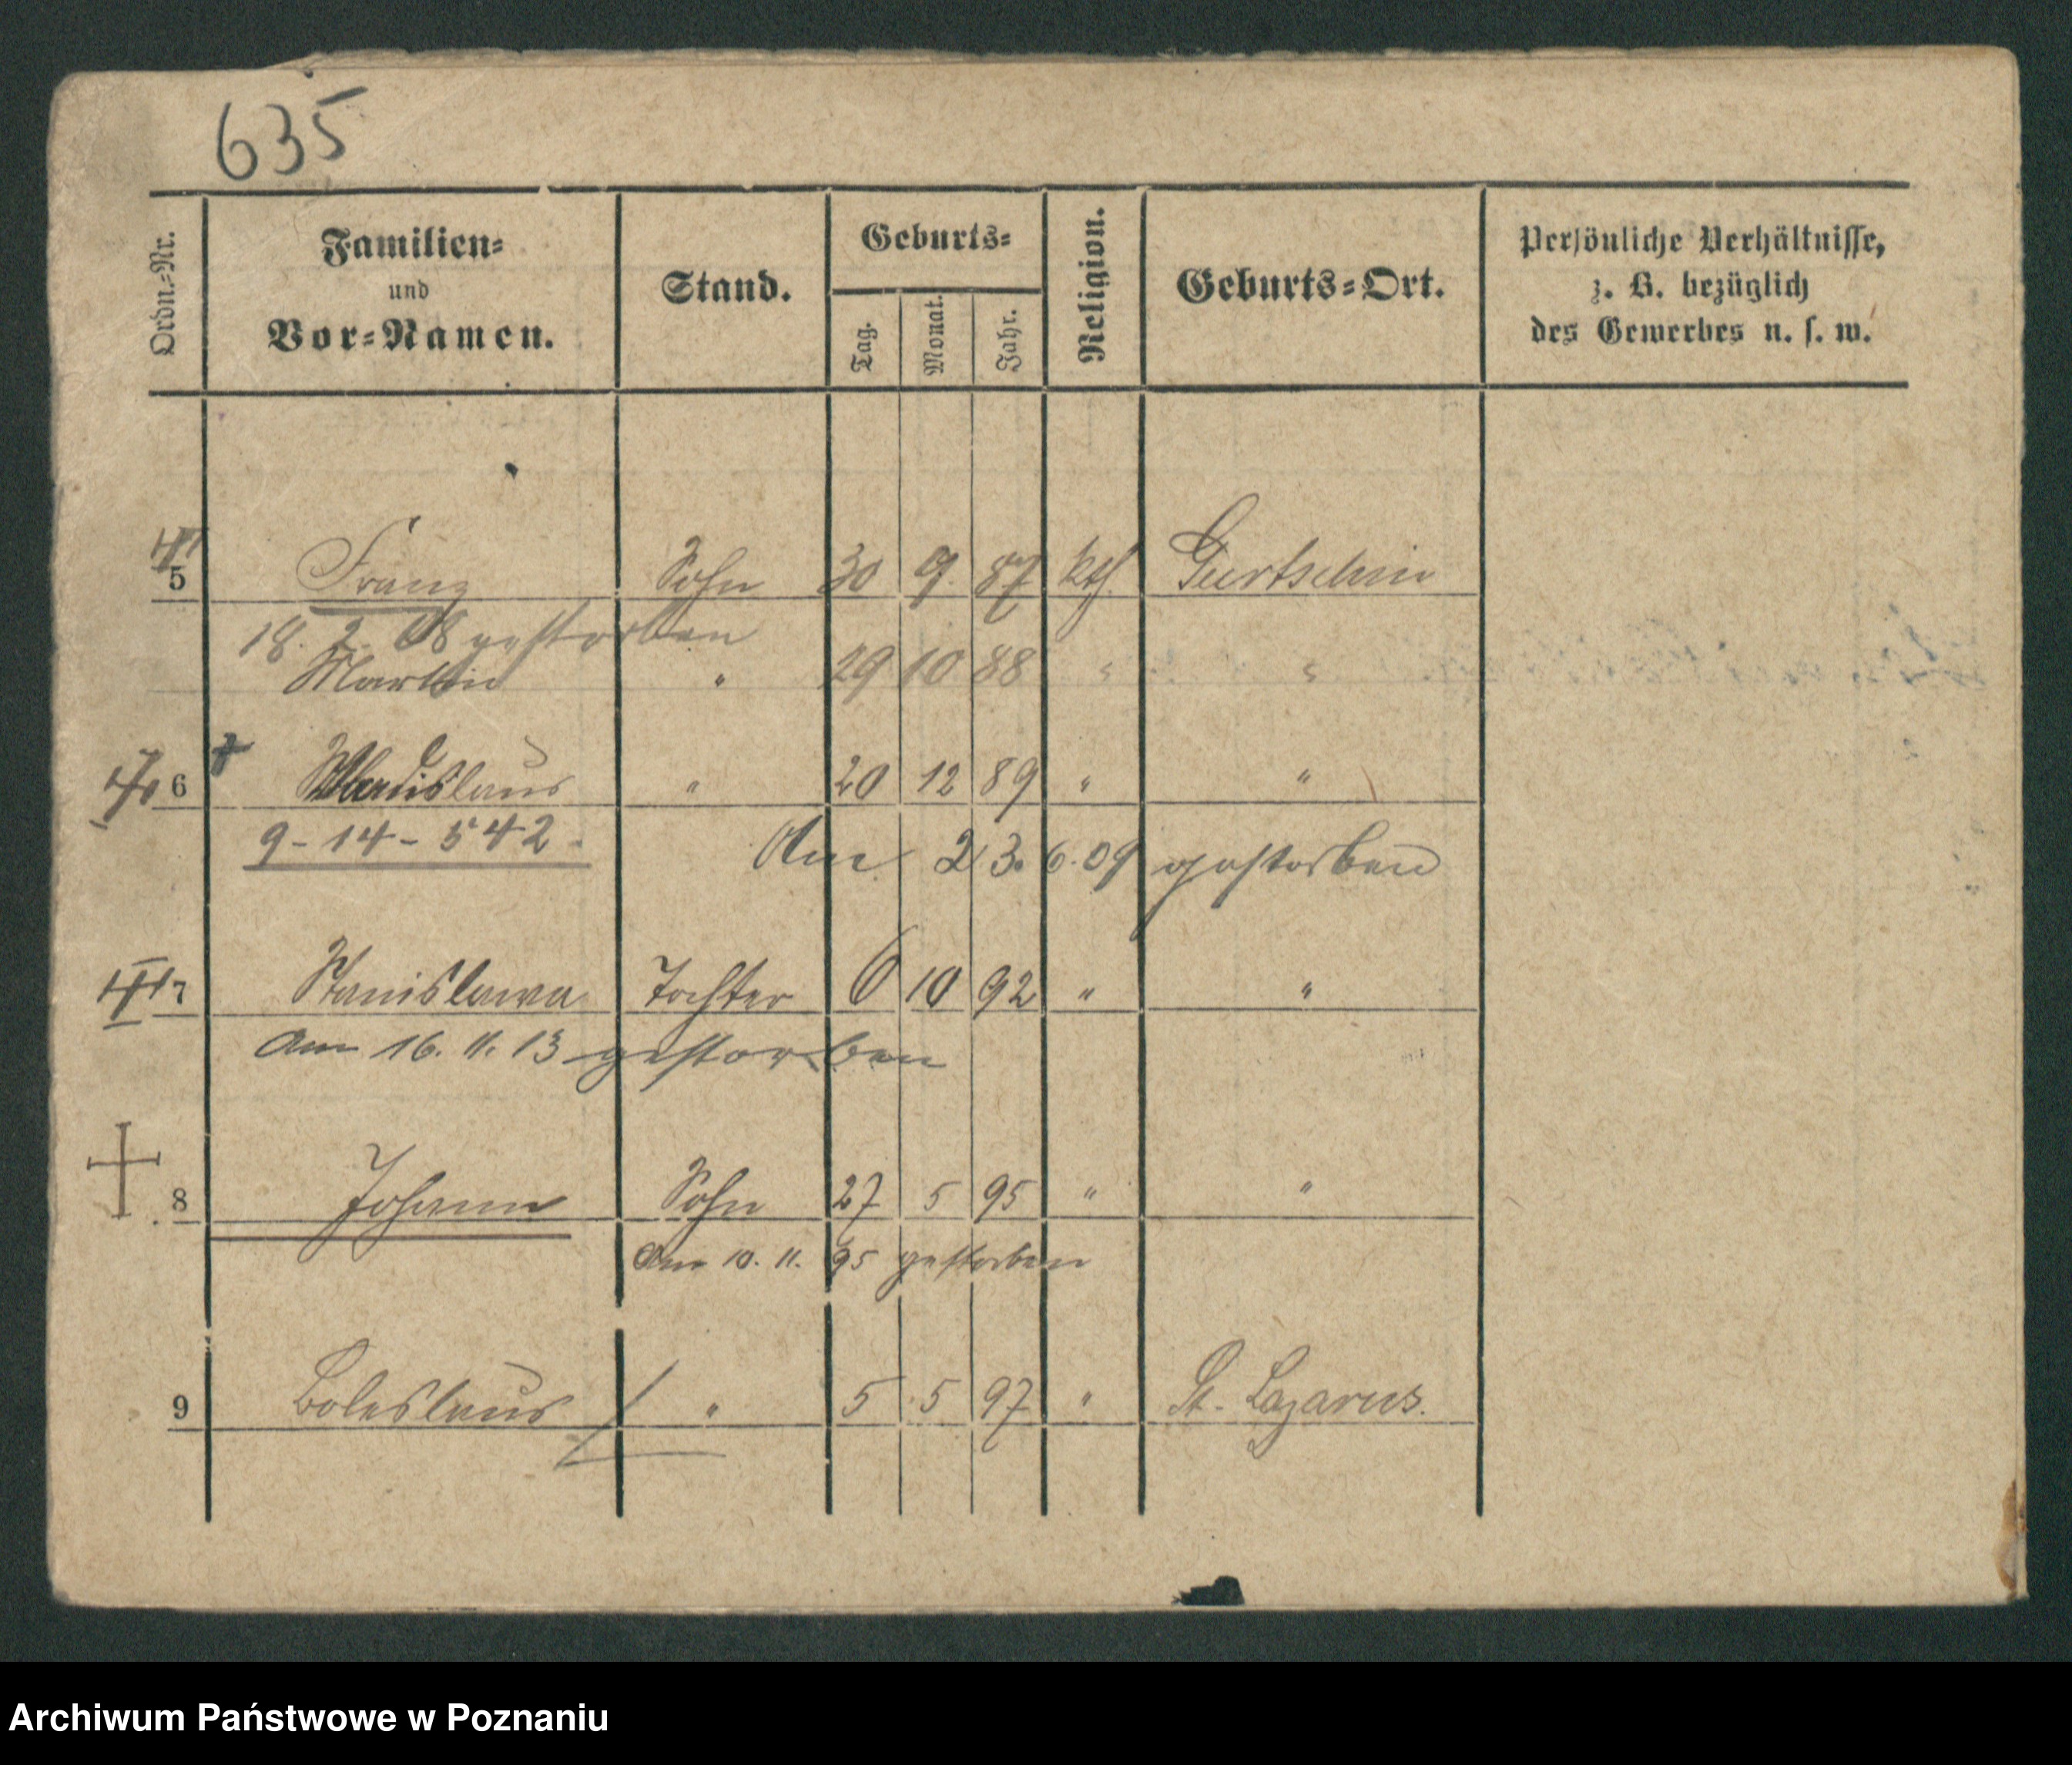 635
Ordn.-Nr. Familien- und Vor-Namen. Stand. Geburts- Tag. Monat. Jahr. Religion. Geburts-Ort. Persönliche Verhältnisse, z. B. bezüglich des Gewerbes u. s. w.
5 Franz Sohn 30 9. 87 kth. Gurtschin
18. 2. 08 gestorben
Martin " 29 10 88 " "
6 Wladislaus " 20 12 89 " "
9-14-542.
Am 23. 6. 09 gestorben
7 Stanislawa Tochter 6 10 92 " "
Am 16. 11. 13 gestorben
8 Johann Sohn 27 5 95 " "
Am 10. 11. 95 gestorben
9 Boleslaus " 5 5 97 " St. Lazarus.
Archiwum Państwowe w Poznaniu